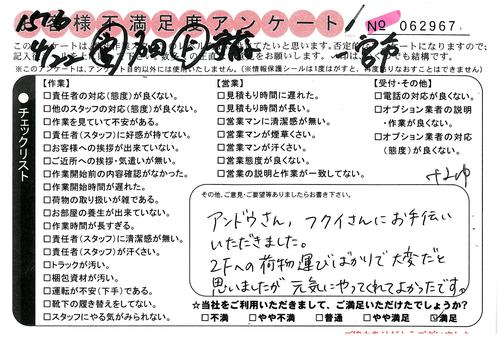 お客様不満足度アンケート
No 062967
チェックリスト
【作業】
□責任者の対応(態度)が良くない。
□他のスタッフの対応(態度)が良くない。
□作業を見ていて不安がある。
□責任者(スタッフ)に好感が持てない。
□お客様への挨拶が出来ていない。
□ご近所への挨拶・気遣いが無い。
□作業開始前の内容確認がなかった。
□作業開始時間が遅れた。
□荷物の取り扱いが雑である。
□お部屋の養生が出来ていない。
□作業時間が長すぎる。
□責任者(スタッフ)に清潔感が無い。
□責任者(スタッフ)が汗くさい。
□トラックが汚い。
□梱包資材が汚い。
□運転が不安(下手)である。
□靴下の履き替えをしてない。
□スタッフにやる気がみられない。
【営業】
□見積もり時間に遅れた。
□見積もり時間が長い。
□営業マンに清潔感が無い。
□営業マンが煙草くさい。
□営業マンが汗くさい。
□営業態度が良くない。
□営業の説明と作業が一致してない。
【受付・その他】
□電話の対応が良くない。
□オプション業者の説明
・作業が良くない。
□オプション業者の対応
(態度)が良くない。
その他、ご意見・ご要望等ありましたらお書き下さい。
アンドウさん，フクイさんにお手伝い
いただきました。
2Fへの荷物運びばかりで大変だと
思いましたが 元気にやってくれてよかったですヮ
☆当社をご利用いただきまして、ご満足いただけたでしょうか?
□不満 □やや不満 □普通 □やや満足 ☑満足